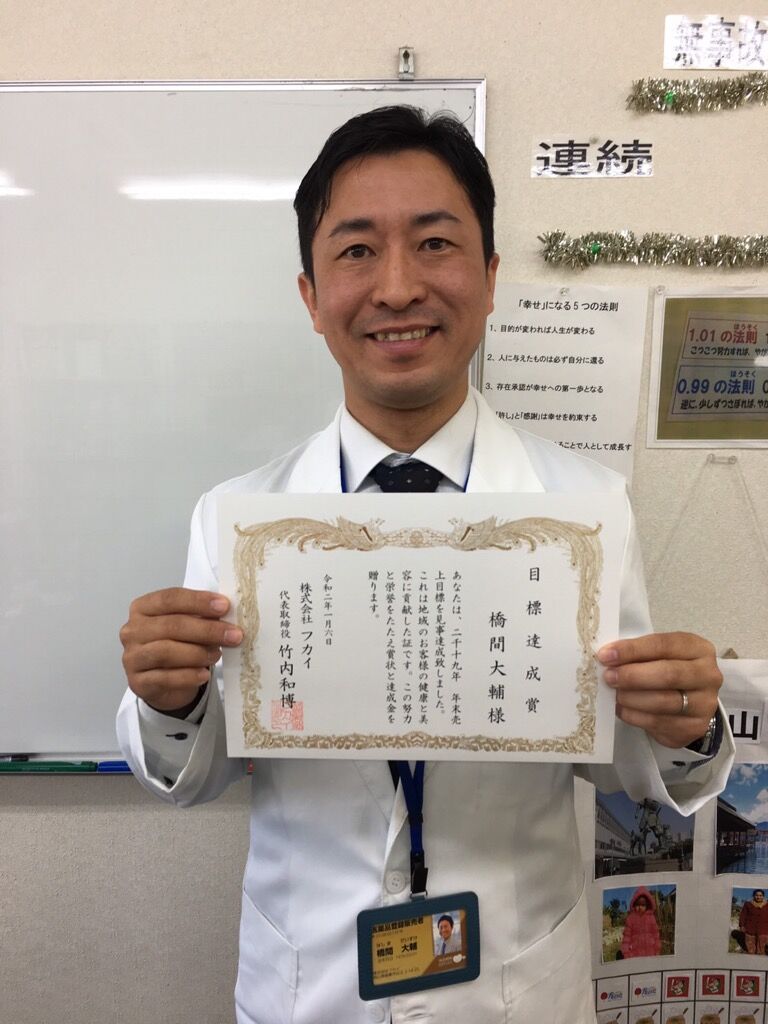 無事故
連続
「幸せ」になる5つの法則
1、目的が変われば人生が変わる
2、人に与えたものは必ず自分に還る
3、存在承認が幸せへの第一歩となる
「許し」と「感謝」は幸せを約束する
ることで人として成長す
ほうそく
1.01の法則
こつこつ努力すれば、やが
ほうそく
0.99の法則
逆に、少しずつさぼれば、やが
目標達成賞
橋間大輔様
あなたは、二千十九年 年末売
上目標を見事達成致しました。
これは地域のお客様の健康と美
容に貢献した証です。この努力
と栄誉をたたえ賞状と達成金を
贈ります。
令和二年一月六日
株式会社 フカイ
代表取締役 竹内和博
山
医薬品登録販売者
はしま だいすけ
橋間 大輔